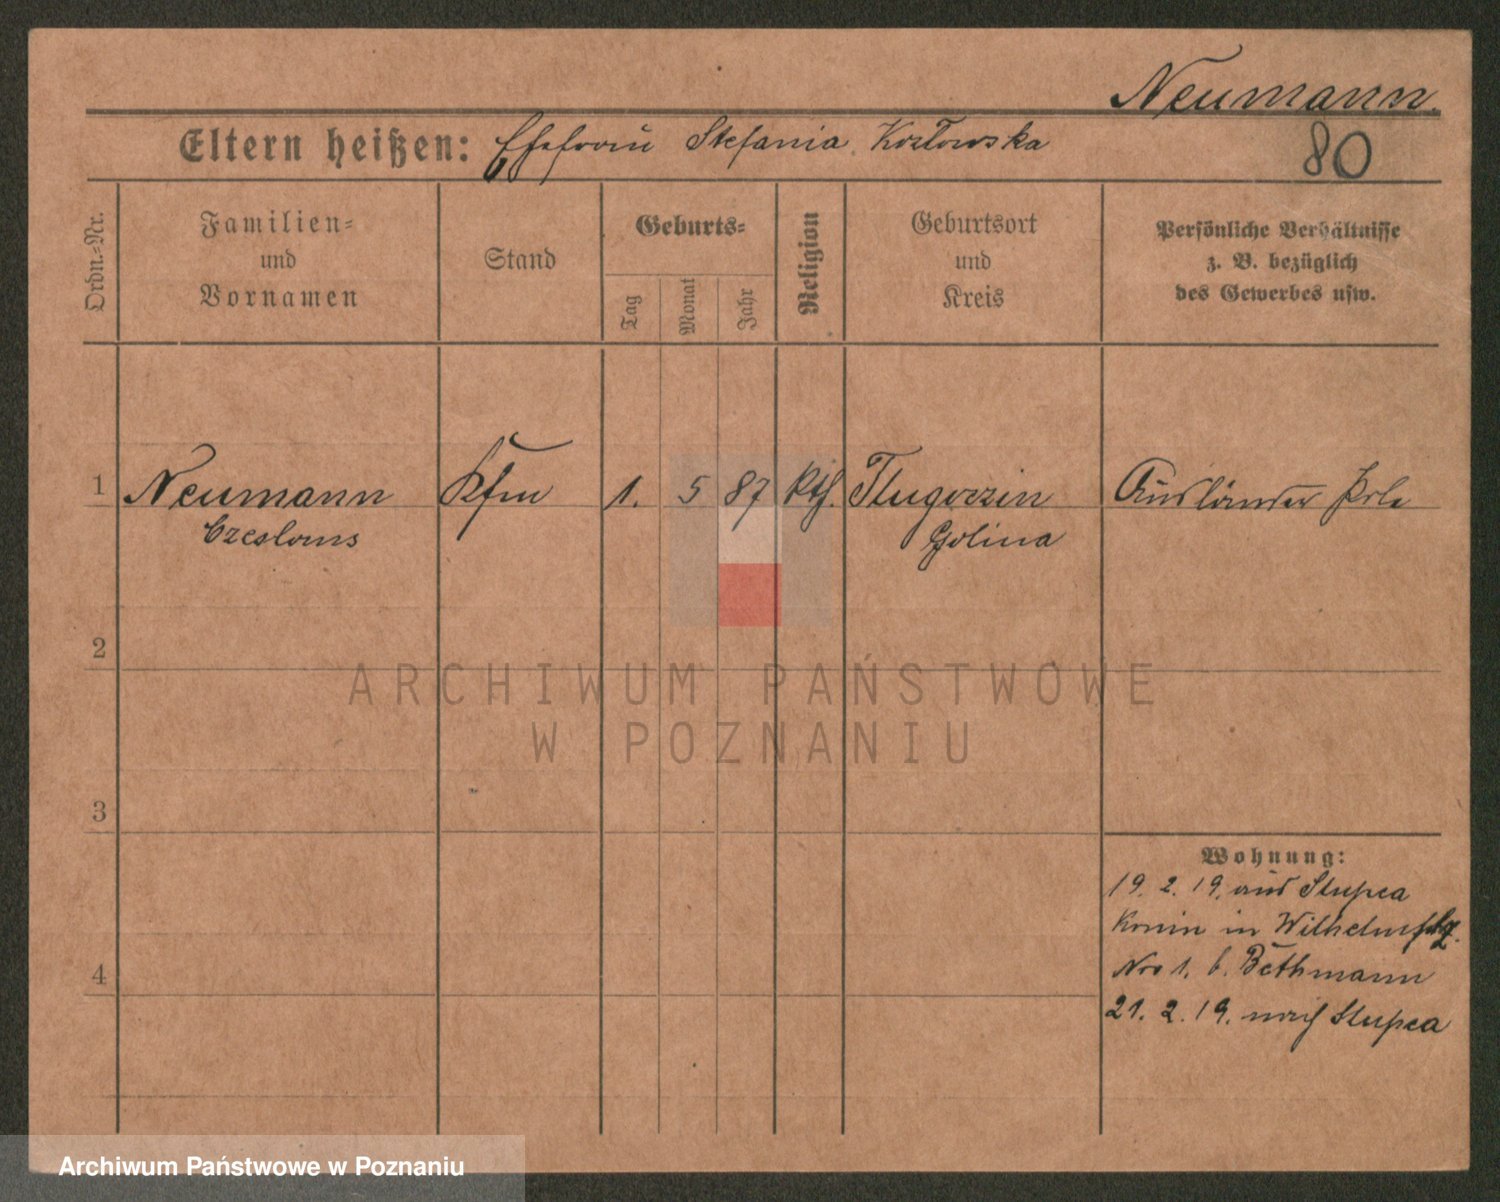 Neumann.
80
Eltern heißen: Ehefrau Stefania Kozlowska
Ordn.-Nr.
Familien-
und
Vornamen
Stand
Geburts-
Tag
Monat
Jahr
Religion
Geburtsort
und
Kreis
Persönliche Verhältnisse
z. B. bezüglich
des Gewerbes usw.
1 Neumann Kfm 1. 5 87 kth. Ausländer Pole
Czeslaus Golina
2
3
4
Wohnung:
19. 2. 19. aus Stupca
Konin in
Nro 1. b. Bethmann
21. 2. 19. nach Stupca
ARCHIWUM PAŃSTWOWE
W POZNANIU
Archiwum Państwowe w Poznaniu